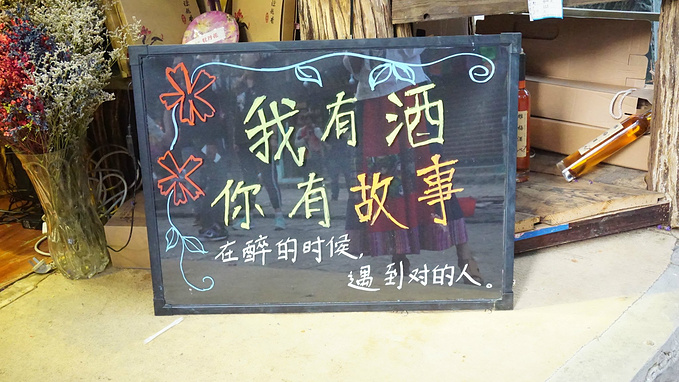 我有酒
你有故事
在醉的时候,
遇到对的人。